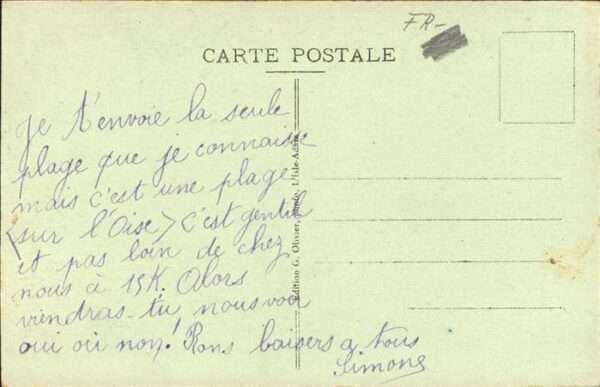 FR-
CARTE POSTALE
Je t'envoie la seule
plage que je connaisse
mais c'est une plage
<sur l'Oise> c'est gentil
et pas loin de chez
nous à 15K. Alors
viendras-tu nous voir
oui ou non! Bons baisers a tous
Simone
Edition G. Olivier, photo. L'Isle-Adam